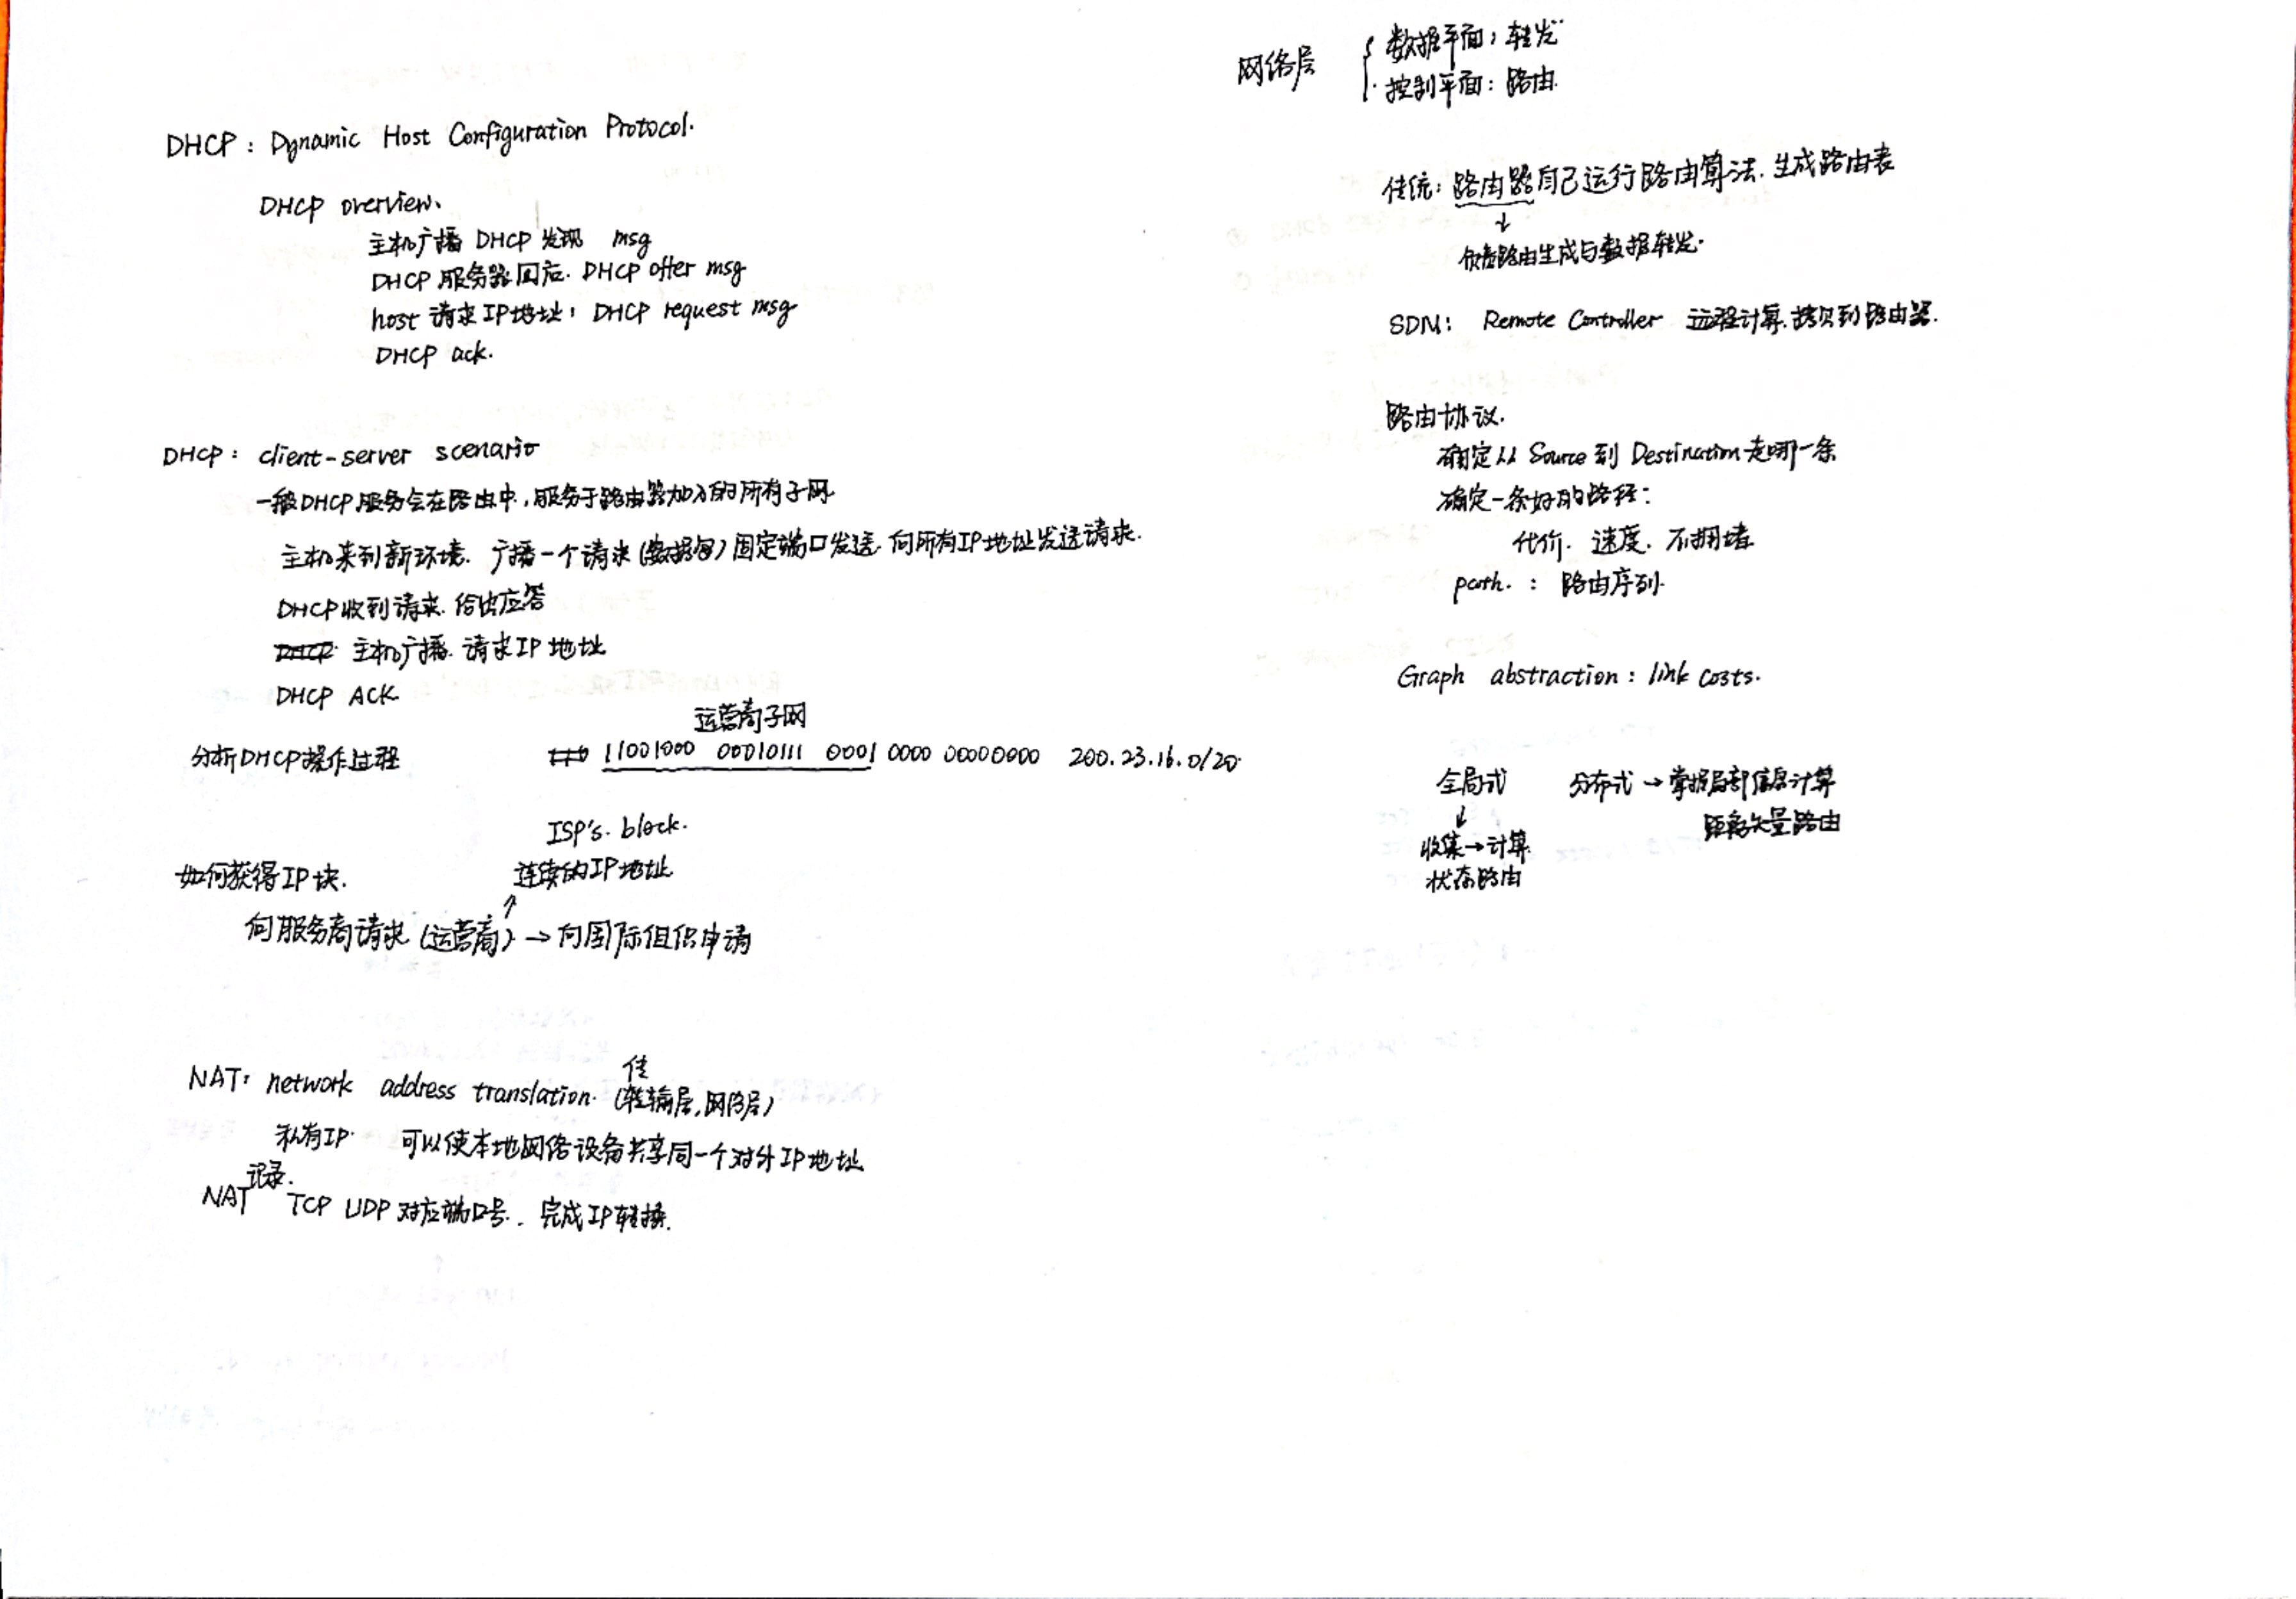 DHCP: Dynamic Host Configuration Protocol.
DHCP overview.
主机广播 DHCP 发现 msg
DHCP 服务器回应. DHCP offer msg
host 请求IP地址: DHCP request msg
DHCP ack.
DHCP: client-server scenario
一般DHCP服务会在路由中,服务于路由器加入的所有子网.
主机来到新环境. 广播一个请求(数据包)固定端口发送. 向所有IP地址发送请求.
DHCP收到请求. 给出应答
主机广播. 请求IP地址
DHCP ACK
运营商子网
分析DHCP操作过程 11001000 00010111 00010000 00000000 200.23.16.0/20
ISP's. block.
如何获得IP块. 连续的IP地址
↑
向服务商请求(运营商) → 向国际组织申请
传
NAT: network address translation. (转输层,网络层)
私有IP. 可以使本地网络设备共享同一个对外IP地址
记录.
NAT TCP UDP 对应端口号. 完成IP转换.
网络层 { 数据平面: 转发
控制平面: 路由.
传统: 路由器自己运行路由算法. 生成路由表
↓
负责路由生成与数据转发.
SDN: Remote Controller 远程计算.拷贝到路由器.
路由协议.
确定从 Source 到 Destination 走哪一条
确定一条好的路径:
代价. 速度. 不拥堵
path. : 路由序列.
Graph abstraction: link costs.
全局式 分布式 → 掌握局部信息计算
↓ 距离矢量路由
收集→计算.
状态路由